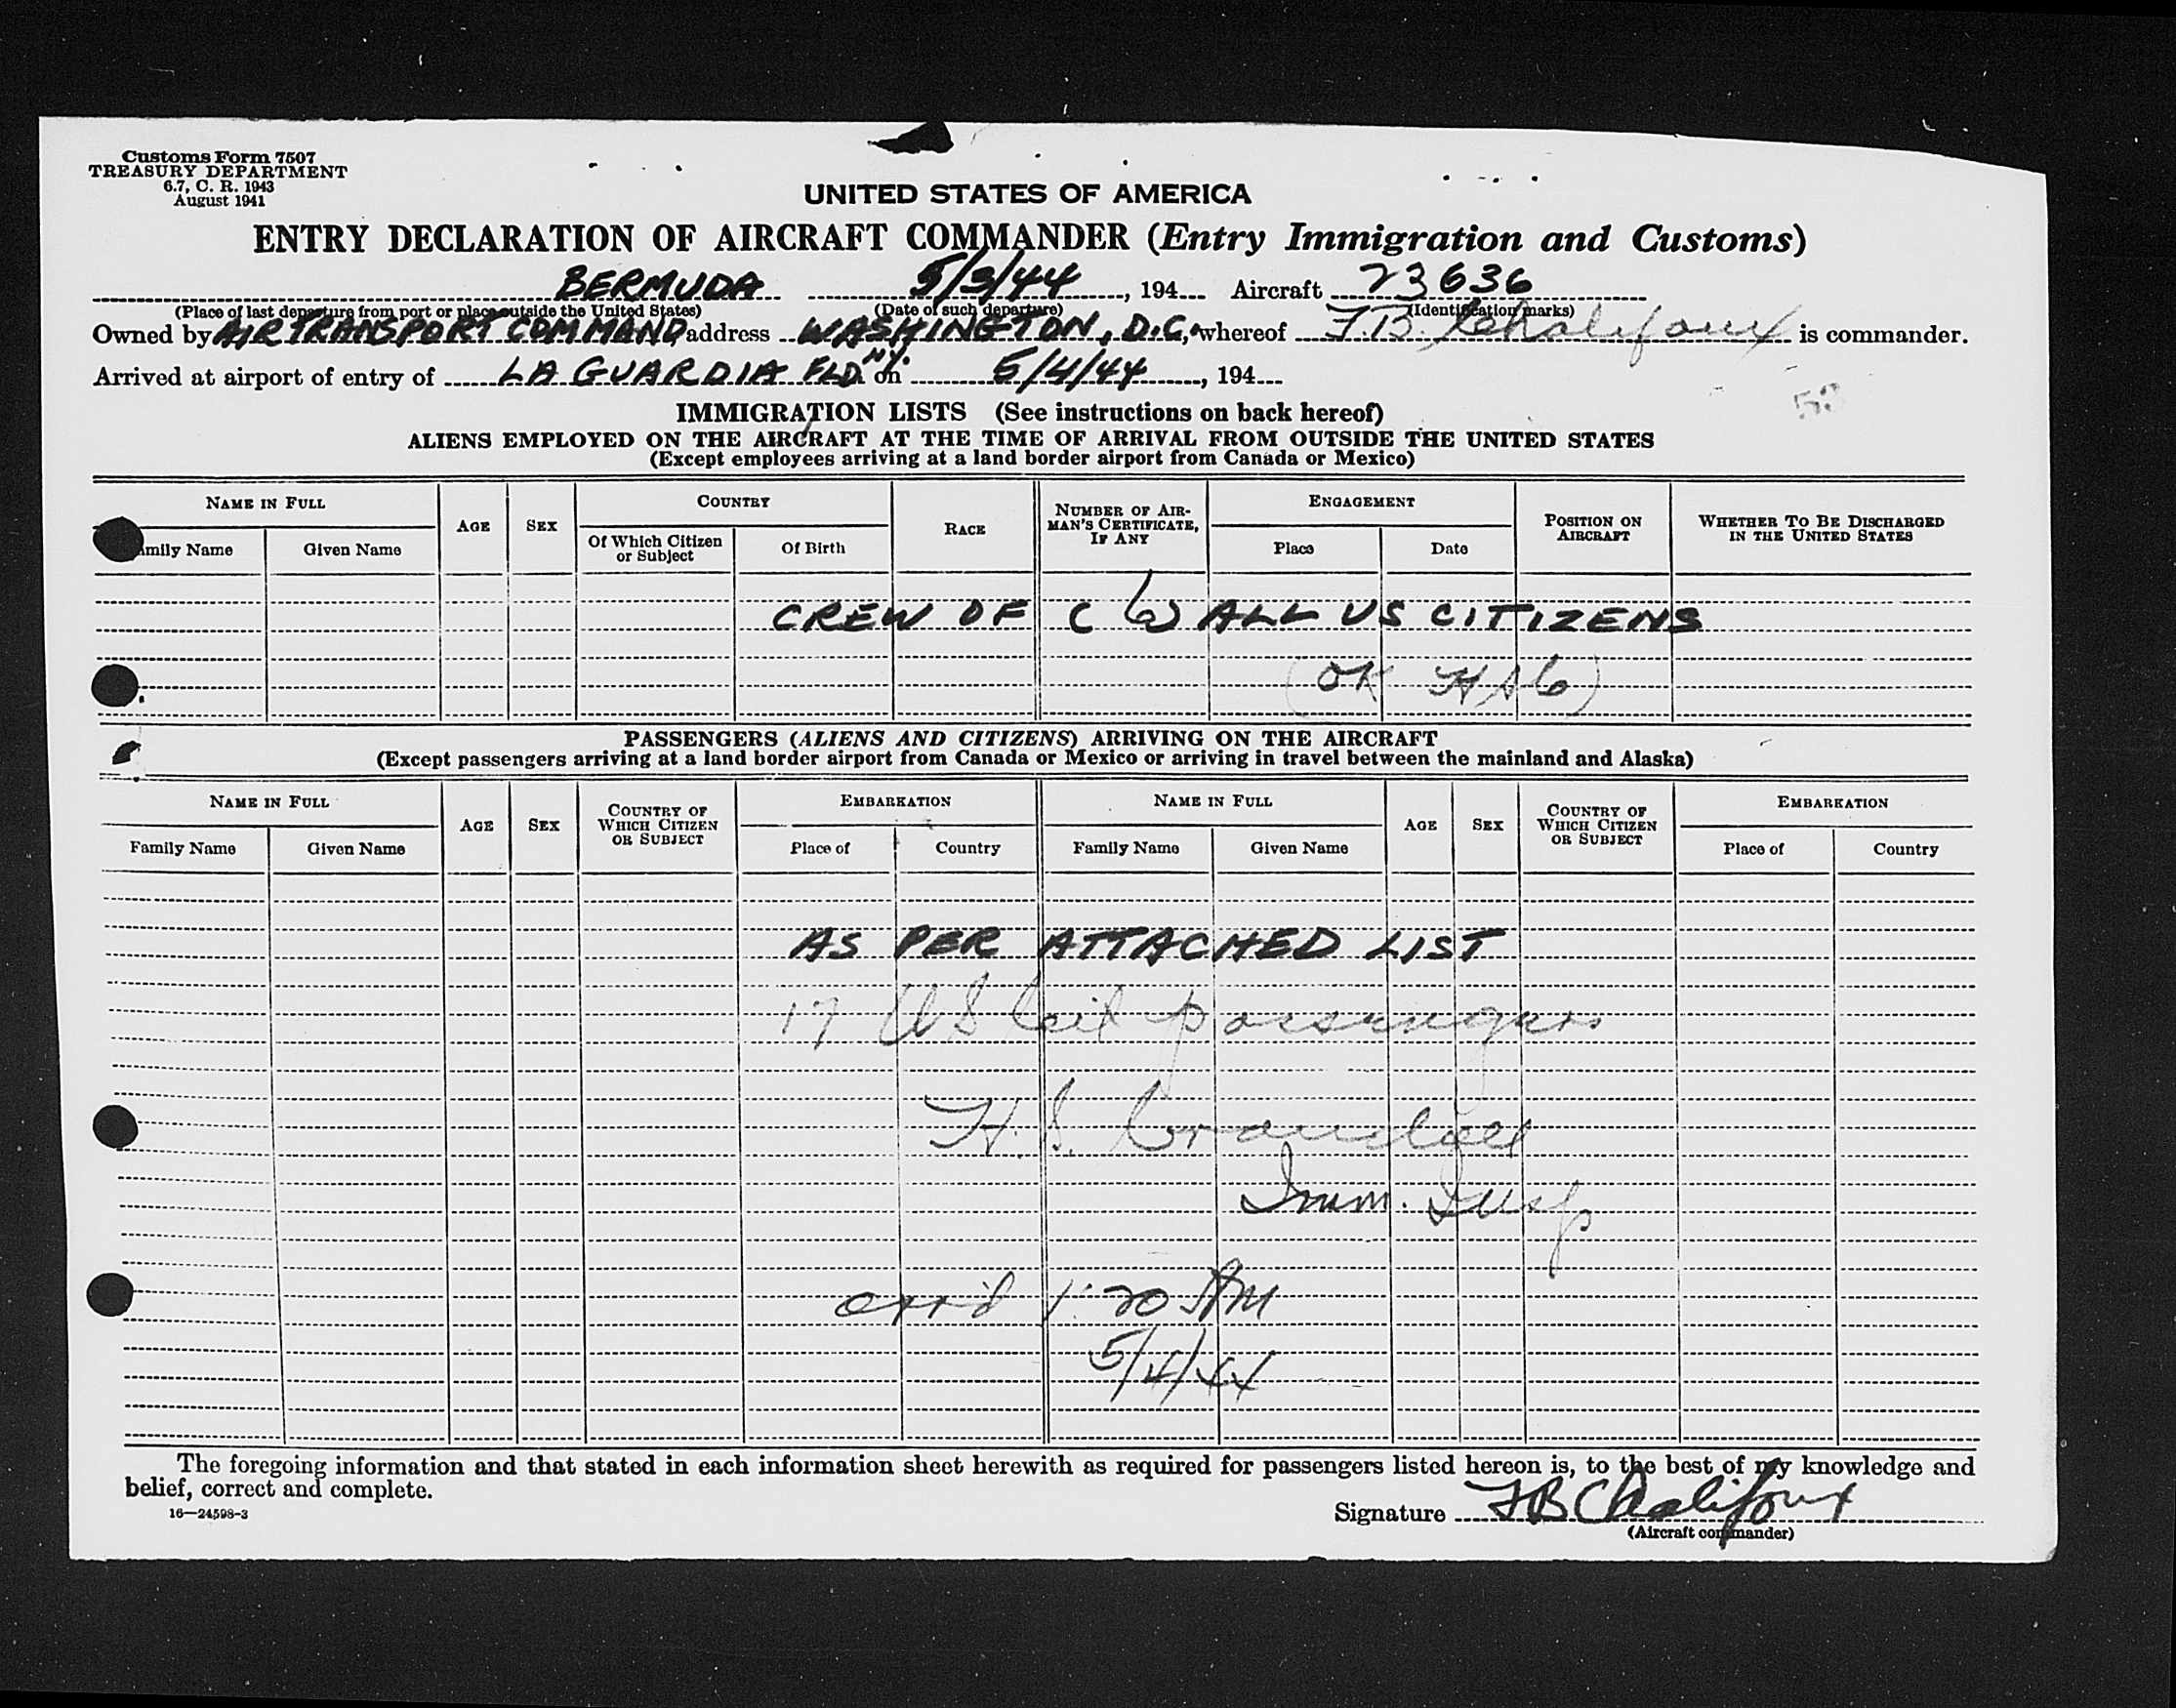 Customs Form 7507
TREASURY DEPARTMENT
6.7, C. R. 1943
August 1941
UNITED STATES OF AMERICA
ENTRY DECLARATION OF AIRCRAFT COMMANDER (Entry Immigration and Customs)
BERMUDA 5/3/44, 194 Aircraft 23636
(Place of last departure from port or place outside the United States) (Date of such departure) (Identification marks)
Owned by AIR TRANSPORT COMMAND address WASHINGTON, D.C., whereof F.B. Chalifoux is commander.
Arrived at airport of entry of LA GUARDIA FLD. N.Y. on 5/4/44, 194
53
IMMIGRATION LISTS (See instructions on back hereof)
ALIENS EMPLOYED ON THE AIRCRAFT AT THE TIME OF ARRIVAL FROM OUTSIDE THE UNITED STATES
(Except employees arriving at a land border airport from Canada or Mexico)
NAME IN FULL AGE SEX COUNTRY RACE NUMBER OF AIRMAN'S CERTIFICATE, IF ANY ENGAGEMENT POSITION ON AIRCRAFT WHETHER TO BE DISCHARGED IN THE UNITED STATES
amily Name Given Name Of Which Citizen or Subject Of Birth Place Date
CREW OF (6) ALL US CITIZENS
(OK HSC)
PASSENGERS (ALIENS AND CITIZENS) ARRIVING ON THE AIRCRAFT
(Except passengers arriving at a land border airport from Canada or Mexico or arriving in travel between the mainland and Alaska)
NAME IN FULL AGE SEX COUNTRY OF WHICH CITIZEN OR SUBJECT EMBARKATION NAME IN FULL AGE SEX COUNTRY OF WHICH CITIZEN OR SUBJECT EMBARKATION
Family Name Given Name Place of Country Family Name Given Name Place of Country
AS PER ATTACHED LIST
17 US Cit passengers
H. S. Crandall
Imm. Insp
arr'd 1:20 AM
5/4/44
The foregoing information and that stated in each information sheet herewith as required for passengers listed hereon is, to the best of my knowledge and
belief, correct and complete.
16—24598-3
Signature FB Chalifoux
(Aircraft commander)